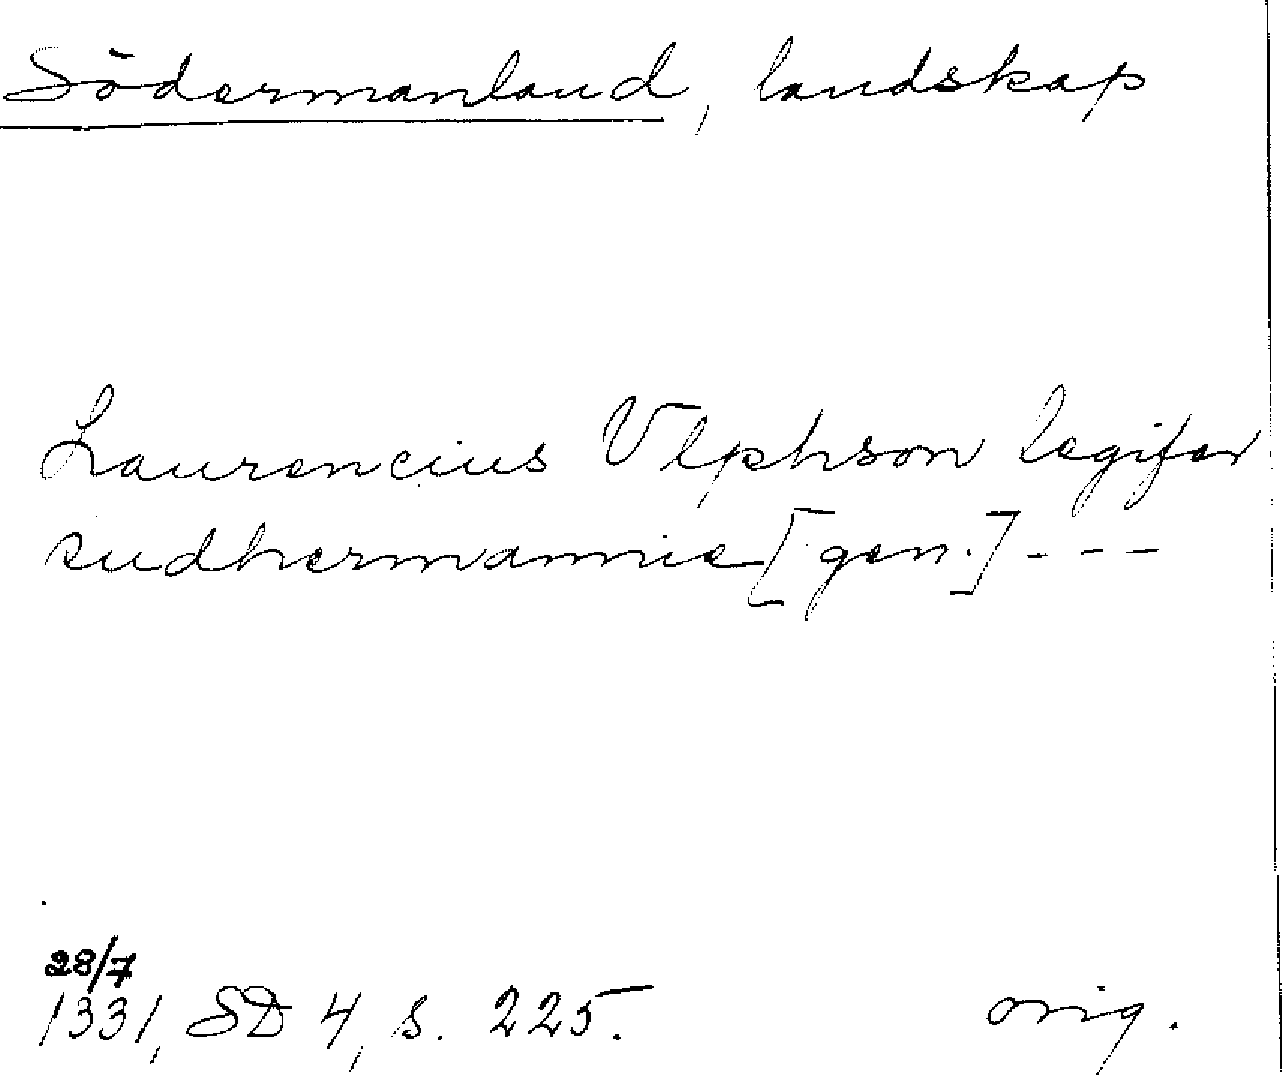 Södermanland, landskap
Laurencius Vlphson legifer
sudhermannie [gen.] - - -
28/7
1331, SD 4, s. 225.
orig.